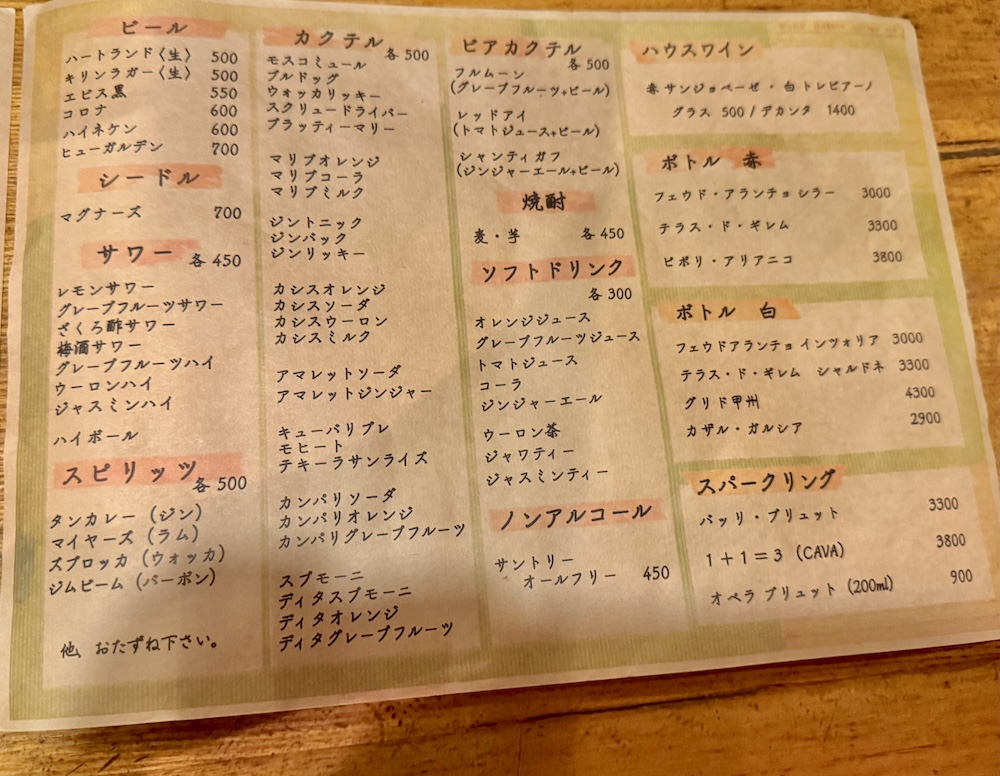 ビール
ハートランド〈生〉 500
キリンラガー〈生〉 500
エビス黒 550
コロナ 600
ハイネケン 600
ヒューガルデン 700
シードル
マグナーズ 700
サワー 各450
レモンサワー
グレープフルーツサワー
ざくろ酢サワー
梅酒サワー
グレープフルーツハイ
ウーロンハイ
ジャスミンハイ
ハイボール
スピリッツ 各500
タンカレー（ジン）
マイヤーズ（ラム）
ズブロッカ（ウォッカ）
ジムビーム（バーボン）
他、おたずね下さい。
カクテル 各500
モスコミュール
ブルドッグ
ウォッカリッキー
スクリュードライバー
ブラッティーマリー
マリブオレンジ
マリブコーラ
マリブミルク
ジントニック
ジンバック
ジンリッキー
カシスオレンジ
カシスソーダ
カシスウーロン
カシスミルク
アマレットソーダ
アマレットジンジャー
キューバリブレ
モヒート
テキーラサンライズ
カンパリソーダ
カンパリオレンジ
カンパリグレープフルーツ
スプモーニ
ディタスプモーニ
ディタオレンジ
ディタグレープフルーツ
ビアカクテル
各500
フルムーン
(グレープフルーツ+ビール)
レッドアイ
(トマトジュース+ビール)
シャンティガフ
(ジンジャーエール+ビール)
焼酎
麦・芋 各450
ソフトドリンク
各300
オレンジジュース
グレープフルーツジュース
トマトジュース
コーラ
ジンジャーエール
ウーロン茶
ジャワティー
ジャスミンティー
ノンアルコール
サントリー
オールフリー 450
ハウスワイン
赤 サンジョベーゼ ・ 白 トレビアーノ
グラス 500 / デカンタ 1400
ボトル 赤
フェウド・アランチョ シラー 3000
テラス・ド・ギレム 3300
ビポリ・アリアニコ 3800
ボトル 白
フェウドアランチョ インツォリア 3000
テラス・ド・ギレム シャルドネ 3300
グリド甲州 4300
カザル・ガルシア 2900
スパークリング
バッリ・ブリュット 3300
1+1=3 (CAVA) 3800
オペラ ブリュット (200ml) 900